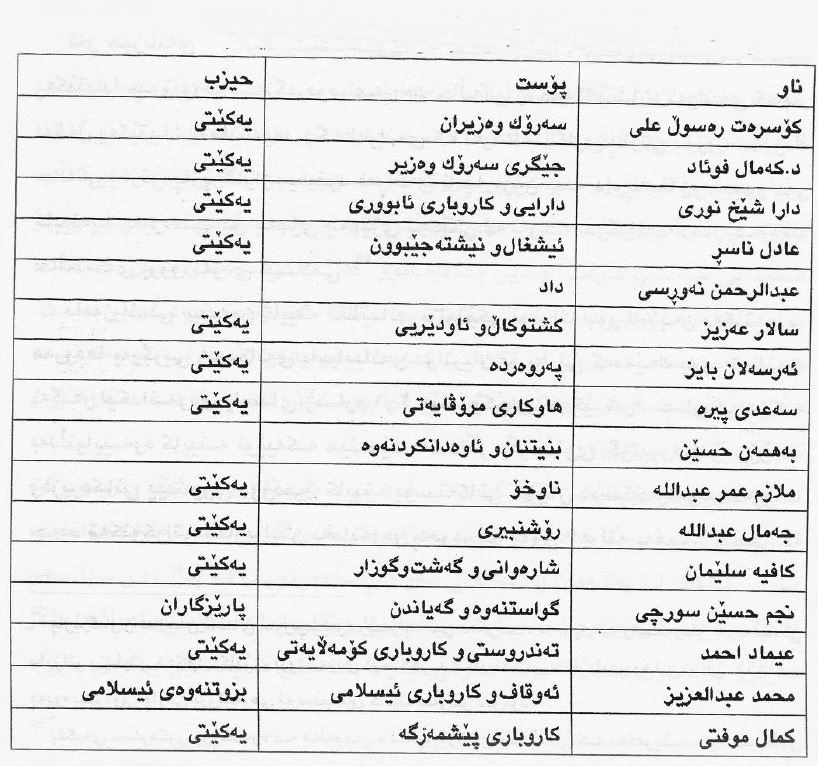 ناو پۆست حیزب
كۆسرەت رەسوڵ علی سەرۆك وەزیران یەكێتی
د.كەمال فوئاد جێگری سەرۆك وەزیر یەكێتی
دارا شێخ نوری دارایی و كاروباری ئابووری یەكێتی
عادل ناسڕ ئیشغال و نیشتەجێبوون یەكێتی
عبدالرحمن نەورسی داد
سالار عەزیز كشتوكاڵ و ئاودێریی یەكێتی
ئەرسەلان بایز پەروەردە یەكێتی
سەعدی پیرە هاوكاری مرۆڤایەتی یەكێتی
بەهمەن حسێن بنیتنان و ئاوەدانكردنەوە
ملازم عمر عبدالله ناوخۆ یەكێتی
جەمال عبدالله رۆشنبیری یەكێتی
كافیە سلێمان شارەوانی و گەشت وگوزار یەكێتی
نجم حسێن سورچی گواستنەوە و گەیاندن پارێزگاران
عیماد احمد تەندروستی و كاروباری كۆمەڵایەتی یەكێتی
محمد عبدالعزیز ئەوقاف و كاروباری ئیسلامی بزوتنەوەی ئیسلامی
كمال موفتی كاروباری پێشمەرگە یەكێتی